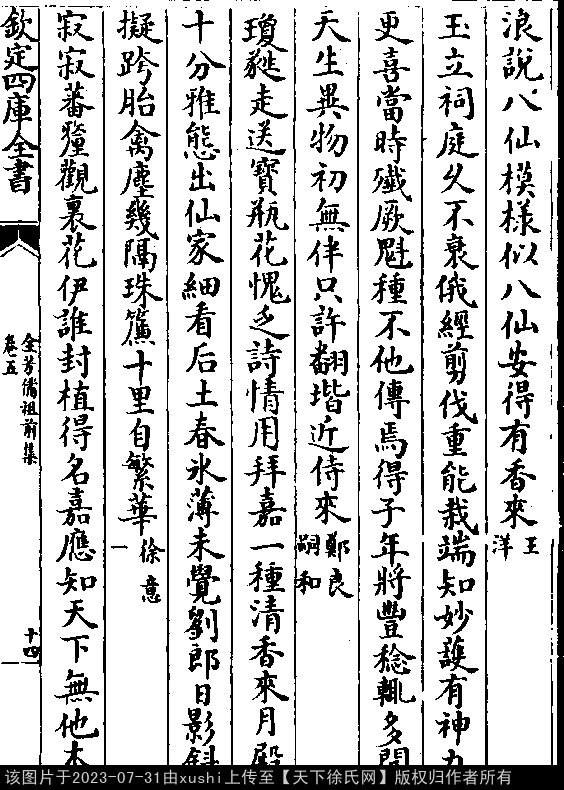 浪說八仙模樣似八仙安得有香來王洋
玉立祠庭久不衰俄經剪伐重能栽端知妙護有神力
更喜當時殲厥魁種不他傳焉得子年將豐稔輒多開
天生異物初無伴只許翻堦近侍來鄭良嗣和
瓊蕤走送寶瓶花愧乏詩情用拜嘉一種清香來月殿
十分雅態出仙家細看后土春氷薄未覺劉郎日影斜
擬跨胎禽塵幾隔珠簾十里自繁華徐意一
寂寂蕃釐觀裏花伊誰封植得名嘉應知天下無他本
欽定四庫全書
全芳備祖前集
卷五
十四
该图片于2023-07-31由xushi上传至【天下徐氏网】版权归作者所有